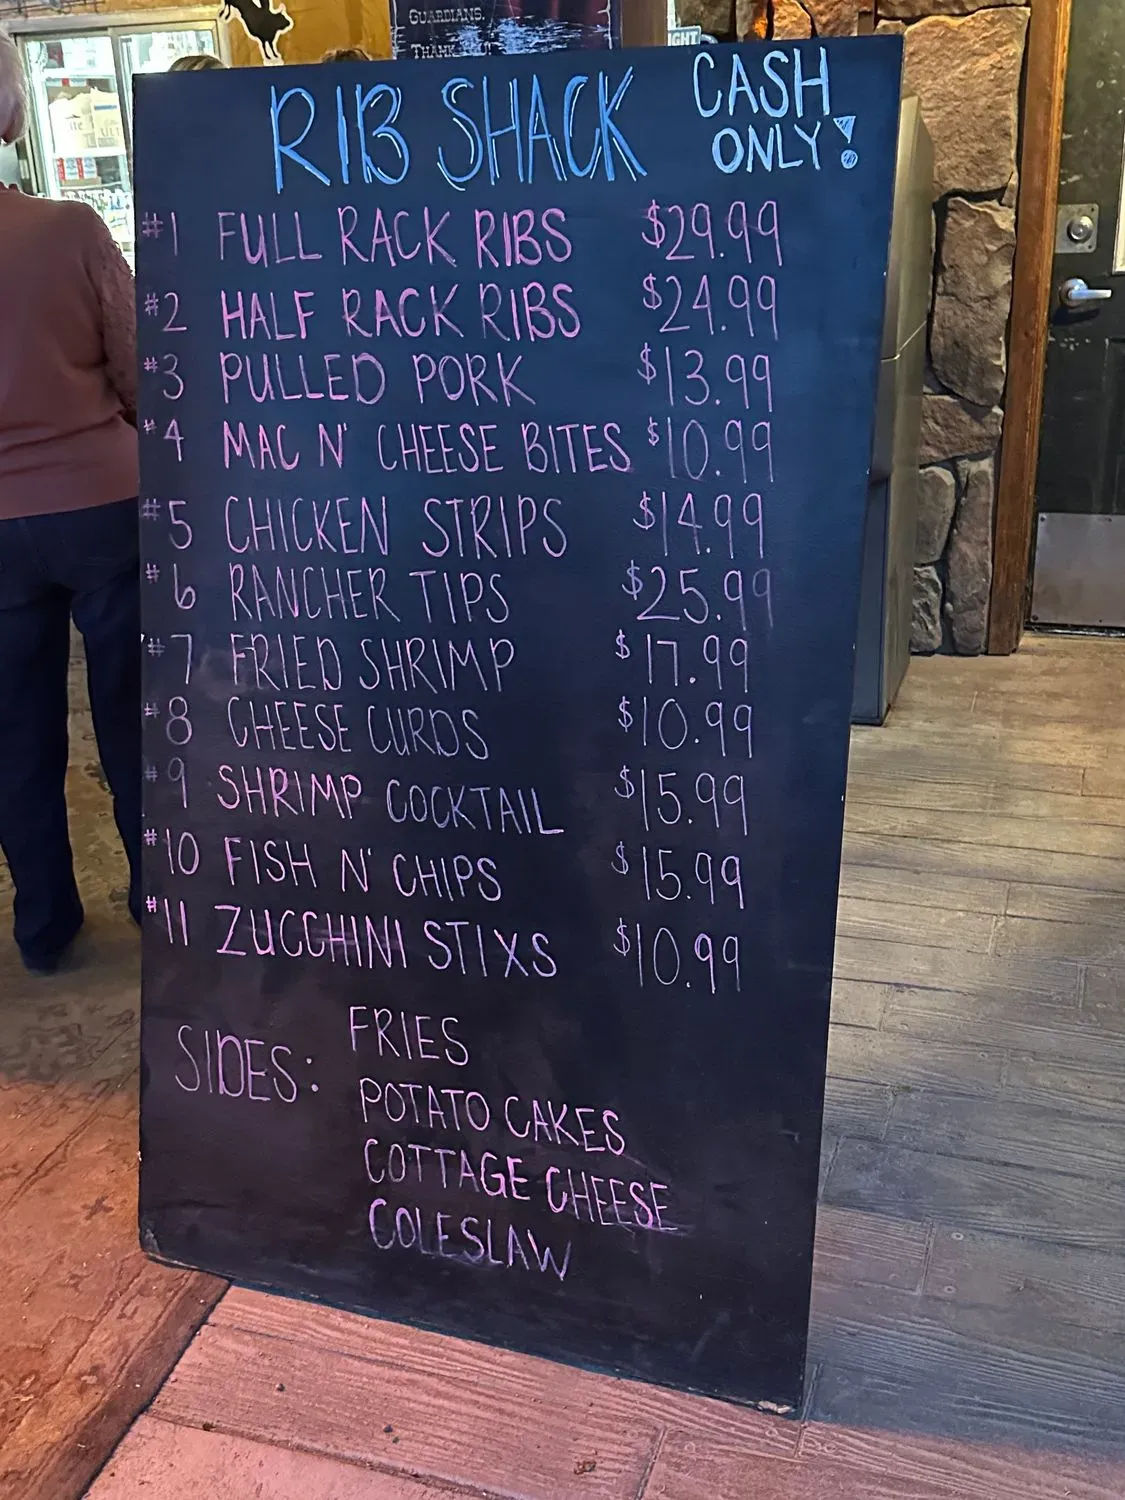 GUARDIANS.
THANK YOU!
RIB SHACK CASH ONLY!
#1 FULL RACK RIBS $29.99
#2 HALF RACK RIBS $24.99
#3 PULLED PORK $13.99
#4 MAC N' CHEESE BITES $10.99
#5 CHICKEN STRIPS $14.99
#6 RANCHER TIPS $25.99
#7 FRIED SHRIMP $17.99
#8 CHEESE CURDS $10.99
#9 SHRIMP COCKTAIL $15.99
#10 FISH N' CHIPS $15.99
#11 ZUCCHINI STIXS $10.99
SIDES: FRIES
POTATO CAKES
COTTAGE CHEESE
COLESLAW